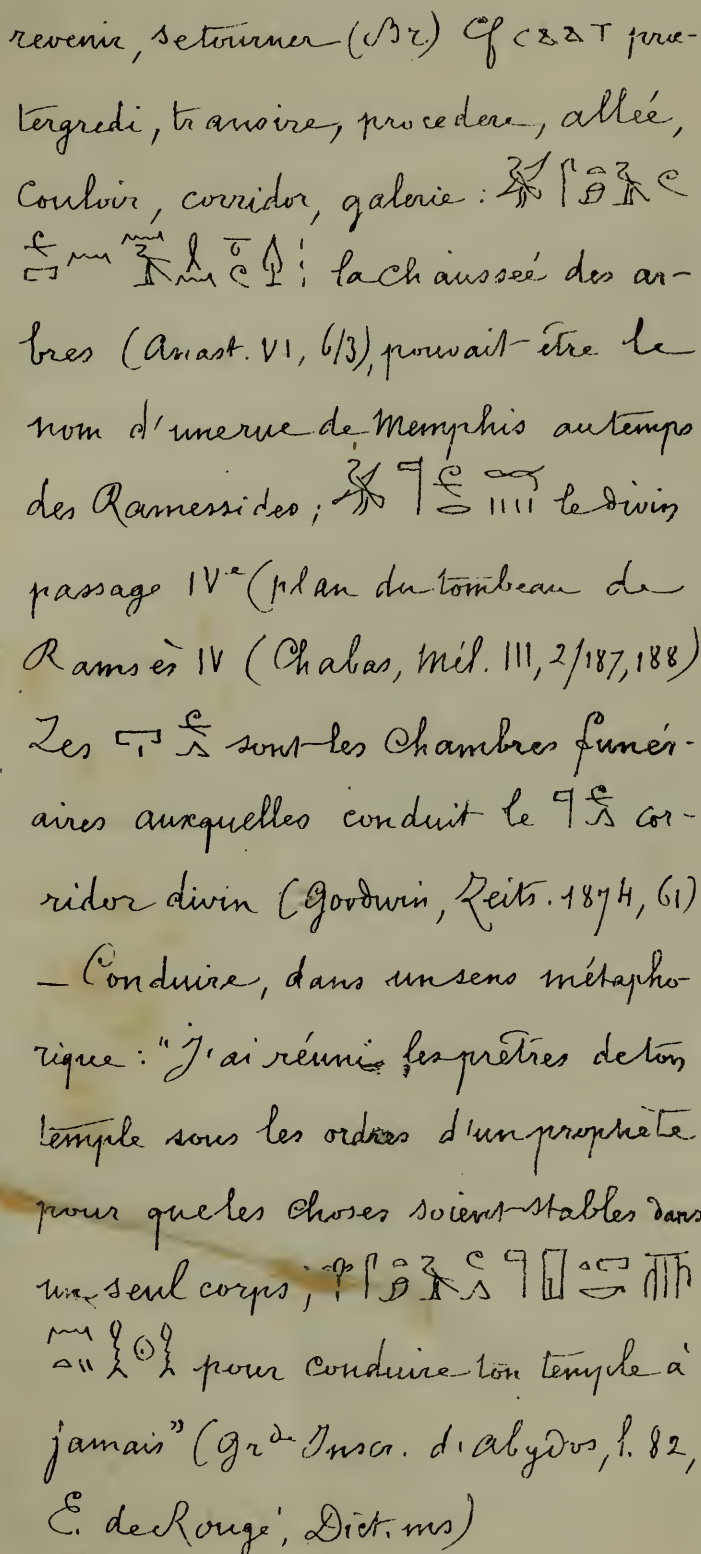 revenir, se tourner (Br.) Cf prae-
tergredi, transire, procedere, allée,
couloir, corridor, galerie :
la chausseé des ar-
bres (Anast. VI, 6/3), pouvait être le
nom d'une rue de Memphis au temps
des Ramessides ; le divin
passage IVe (plan du tombeau de
Ramsès IV (Chabas, Mél. III, 2/187, 188)
Les sont les chambres funér-
aires auxquelles conduit le cor-
ridor divin (Goodwin, Zeits. 1874, 61)
— Conduire, dans un sens métapho-
rique : "J'ai réuni les prêtres de ton
temple sous les ordres d'un prophète
pour que les choses soient stables dans
un seul corps ;
pour conduire ton temple à
jamais" (Grde Inscr. d'Abydos, l. 82,
E. de Rougé, Dict. ms)